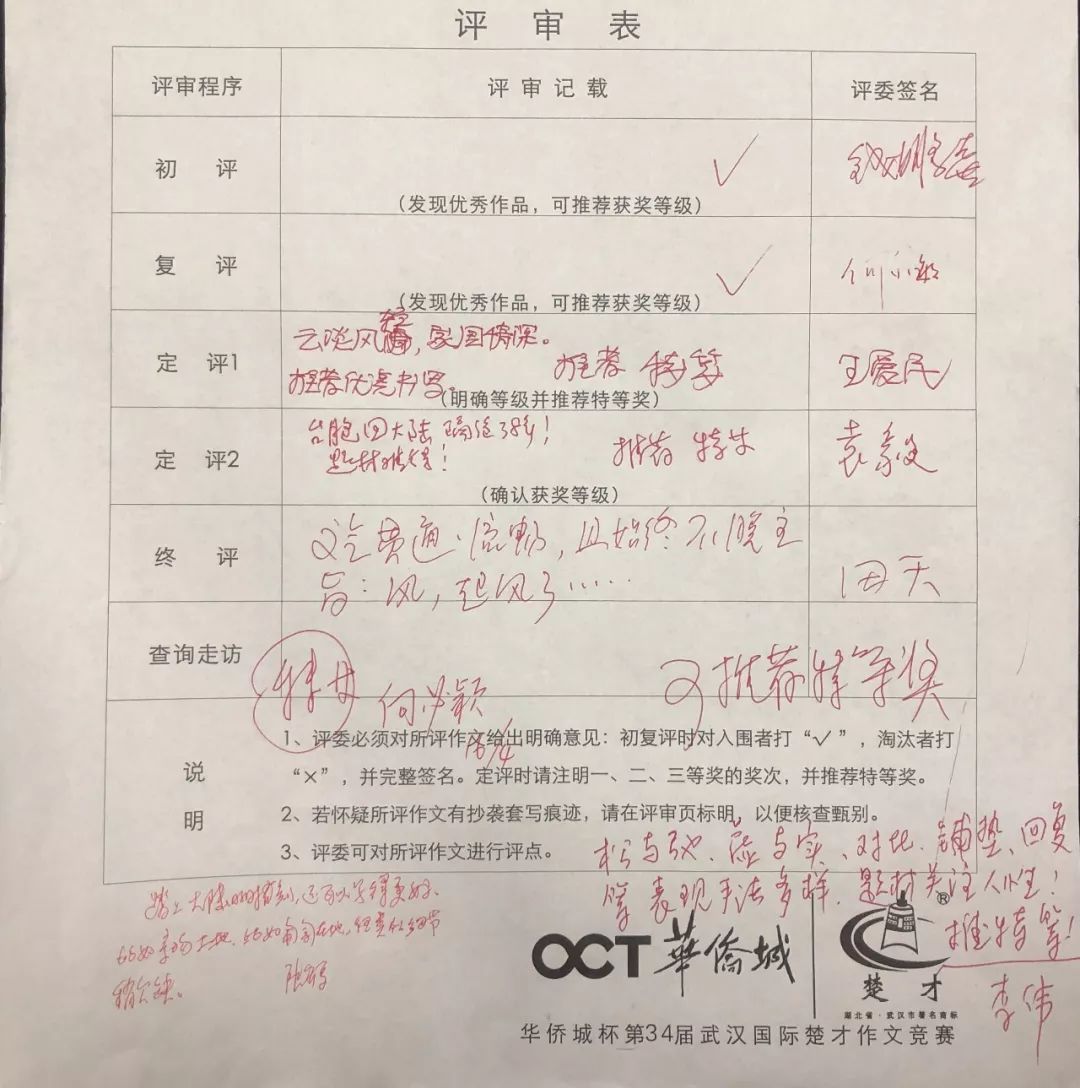 评 审 表
评审程序 评 审 记 载 评委签名
初 评 ✓
(发现优秀作品，可推荐获奖等级)
复 评 ✓
(发现优秀作品，可推荐获奖等级)
云淡风轻，家国情深。
定 评1 推荐 特等 王爱民
推荐优秀书写。
(明确等级并推荐特等奖)
台胞回大陆 隔绝38年！
定 评2 推荐 特等 袁毅
题材难得！
(确认获奖等级)
文气贯通、流畅，且始终不脱主
终 评 田天
旨：风，起风了……
查询走访
可推荐特等奖
何必颖
1、评委必须对所评作文给出明确意见：初复评时对入围者打“✓”，淘汰者打
说 “×”，并完整签名。定评时请注明一、二、三等奖的奖次，并推荐特等奖。
明 2、若怀疑所评作文有抄袭套写痕迹，请在评审页标明，以便核查甄别。
3、评委可对所评作文进行评点。
松与弛、虚与实、对比、铺垫、回复
等表现手法多样，题材关注人性！
推特等！
李伟
踏上大陆的时刻，还可以写得更好。
比如亲吻土地、比如匍匐在地，经典的细节
稍欠缺。
OCT 華僑城
楚才 ®
湖北省·武汉市著名商标
华侨城杯第34届武汉国际楚才作文竞赛